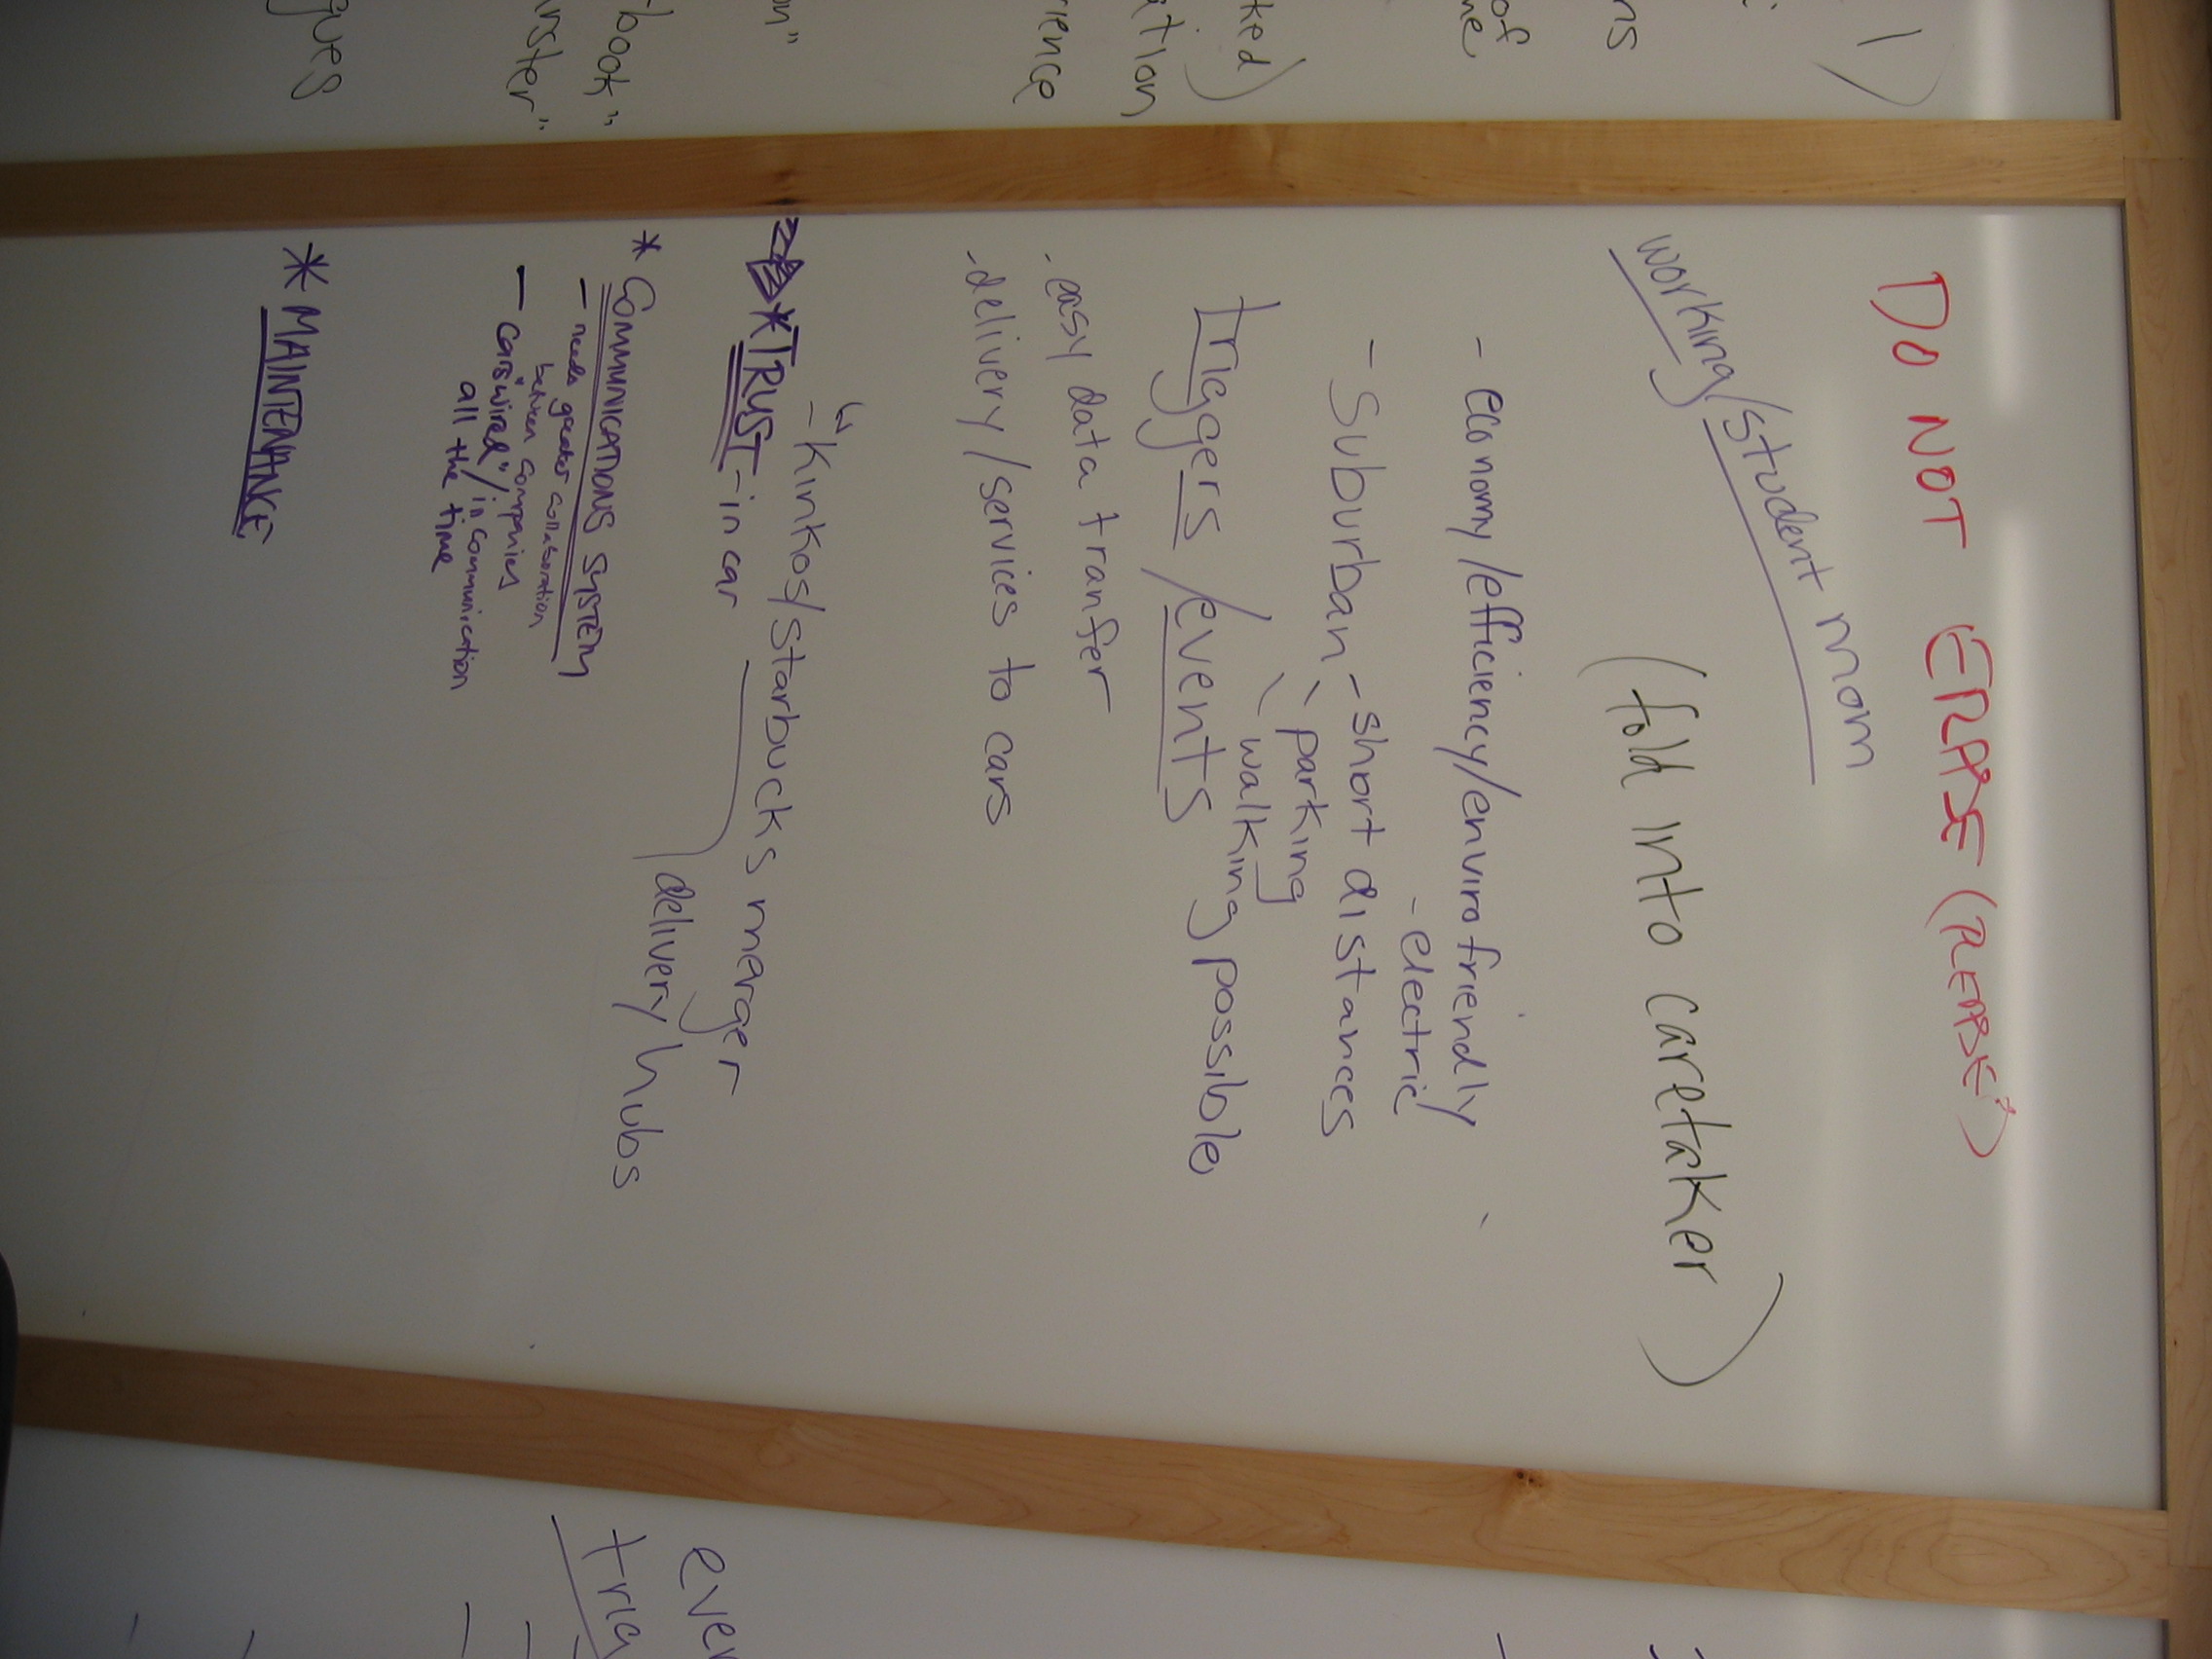 DO NOT ERASE (PLEASE)
working/student mom
(fold into caretaker)
- economy/efficiency/envirofriendly
- electric
- Suburban - short distances
- parking
- walking possible
triggers/events
- easy data tranfer
- delivery/services to cars
- Kinkos/Starbucks merger
* TRUST - in car
delivery hubs
* COMMUNICATIONS SYSTEM
- needs greater collaboration
between companies
- cars "wired"/in communication
all the time
* MAINTENANCE
ns
of
me
ked)
ation
rience
on"
book"
nster"
gues
even
trig